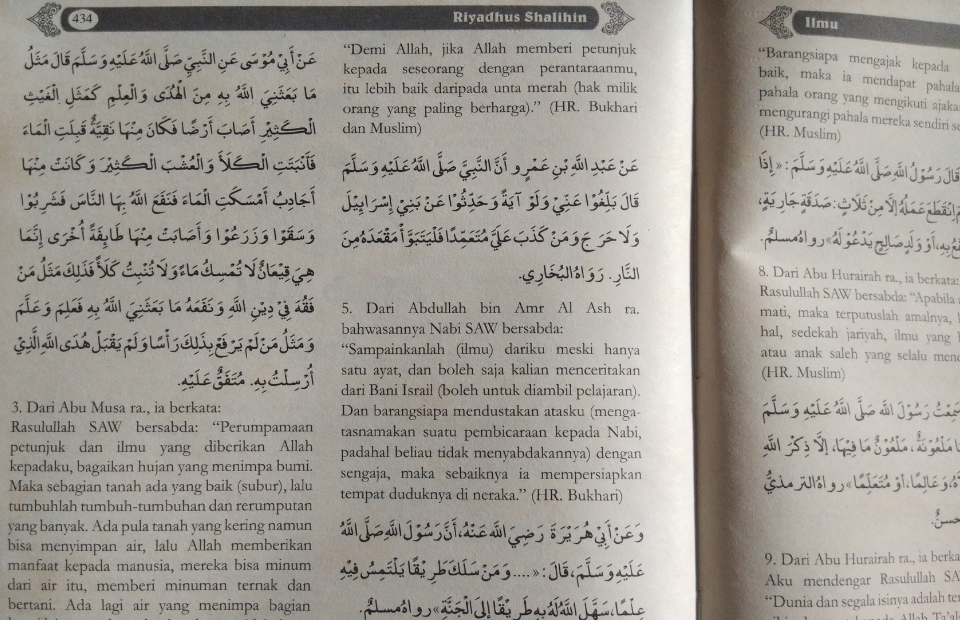 434
Riyadhus Shalihin
عَنْ أَبِيْ مُوْسَى عَنِ النَّبِيِّ صَلَّى اللَّهُ عَلَيْهِ وَسَلَّمَ قَالَ مَثَلُ
مَا بَعَثَنِيَ اللَّهُ بِهِ مِنَ الْهُدَى وَالْعِلْمِ كَمَثَلِ الْغَيْثِ
الْكَثِيْرِ أَصَابَ أَرْضًا فَكَانَ مِنْهَا نَقِيَّةٌ قَبِلَتِ الْمَاءَ
فَأَنْبَتَتِ الْكَلَأَ وَالْعُشْبَ الْكَثِيْرَ وَكَانَتْ مِنْهَا
أَجَادِبُ أَمْسَكَتِ الْمَاءَ فَنَفَعَ اللَّهُ بِهَا النَّاسَ فَشَرِبُوْا
وَسَقَوْا وَزَرَعُوْا وَأَصَابَتْ مِنْهَا طَائِفَةً أُخْرَى إِنَّمَا
هِيَ قِيْعَانٌ لَا تُمْسِكُ مَاءً وَلَا تُنْبِتُ كَلَأً فَذَلِكَ مَثَلُ مَنْ
فَقُهَ فِيْ دِيْنِ اللَّهِ وَنَفَعَهُ مَا بَعَثَنِيَ اللَّهُ بِهِ فَعَلِمَ وَعَلَّمَ
وَمَثَلُ مَنْ لَمْ يَرْفَعْ بِذَلِكَ رَأْسًا وَلَمْ يَقْبَلْ هُدَى اللَّهِ الَّذِيْ
أُرْسِلْتُ بِهِ. مُتَّفَقٌ عَلَيْهِ.
3. Dari Abu Musa ra., ia berkata:
Rasulullah SAW bersabda: “Perumpamaan
petunjuk dan ilmu yang diberikan Allah
kepadaku, bagaikan hujan yang menimpa bumi.
Maka sebagian tanah ada yang baik (subur), lalu
tumbuhlah tumbuh-tumbuhan dan rerumputan
yang banyak. Ada pula tanah yang kering namun
bisa menyimpan air, lalu Allah memberikan
manfaat kepada manusia, mereka bisa minum
dari air itu, memberi minuman ternak dan
bertani. Ada lagi air yang menimpa bagian
“Demi Allah, jika Allah memberi petunjuk
kepada seseorang dengan perantaraanmu,
itu lebih baik daripada unta merah (hak milik
orang yang paling berharga).” (HR. Bukhari
dan Muslim)
عَنْ عَبْدِ اللَّهِ بْنِ عَمْرٍو أَنَّ النَّبِيَّ صَلَّى اللَّهُ عَلَيْهِ وَسَلَّمَ
قَالَ بَلِّغُوْا عَنِّيْ وَلَوْ آيَةً وَحَدِّثُوْا عَنْ بَنِيْ إِسْرَائِيْلَ
وَلَا حَرَجَ وَمَنْ كَذَبَ عَلَيَّ مُتَعَمِّدًا فَلْيَتَبَوَّأْ مَقْعَدَهُ مِنَ
النَّارِ. رَوَاهُ الْبُخَارِي.
5. Dari Abdullah bin Amr Al Ash ra.
bahwasannya Nabi SAW bersabda:
“Sampaikanlah (ilmu) dariku meski hanya
satu ayat, dan boleh saja kalian menceritakan
dari Bani Israil (boleh untuk diambil pelajaran).
Dan barangsiapa mendustakan atasku (menga-
tasnamakan suatu pembicaraan kepada Nabi,
padahal beliau tidak menyabdakannya) dengan
sengaja, maka sebaiknya ia mempersiapkan
tempat duduknya di neraka.” (HR. Bukhari)
وَعَنْ أَبِيْ هُرَيْرَةَ رَضِيَ اللَّهُ عَنْهُ، أَنَّ رَسُوْلَ اللَّهِ صَلَّى اللَّهُ
عَلَيْهِ وَسَلَّمَ، قَالَ: «....وَمَنْ سَلَكَ طَرِيْقًا يَلْتَمِسُ فِيْهِ
عِلْمًا، سَهَّلَ اللَّهُ لَهُ بِهِ طَرِيْقًا إِلَى الْجَنَّةِ» رواه مسلم.
Ilmu
“Barangsiapa mengajak kepada
baik, maka ia mendapat pahala
pahala orang yang mengikuti ajaka
mengurangi pahala mereka sendiri se
(HR. Muslim)
قَالَ رَسُوْلُ اللَّهِ صَلَّى اللَّهُ عَلَيْهِ وَسَلَّمَ: «إِذَا
انْقَطَعَ عَمَلُهُ إِلَّا مِنْ ثَلَاثٍ: صَدَقَةٍ جَارِيَةٍ،
بِهِ، أَوْ وَلَدٍ صَالِحٍ يَدْعُوْ لَهُ» رواه مسلم.
8. Dari Abu Hurairah ra., ia berkata:
Rasulullah SAW bersabda: “Apabila
mati, maka terputuslah amalnya,
hal, sedekah jariyah, ilmu yang
atau anak saleh yang selalu menc
(HR. Muslim)
سَمِعْتُ رَسُوْلَ اللَّهِ صَلَّى اللَّهُ عَلَيْهِ وَسَلَّمَ
مَلْعُوْنَةٌ، مَلْعُوْنٌ مَا فِيْهَا، إِلَّا ذِكْرَ اللَّهِ
وَعَالِمًا، أَوْ مُتَعَلِّمًا» رواه الترمذيُّ
حسنٌ.
9. Dari Abu Hurairah ra., ia berka
Aku mendengar Rasulullah SA
“Dunia dan segala isinya adalah ter